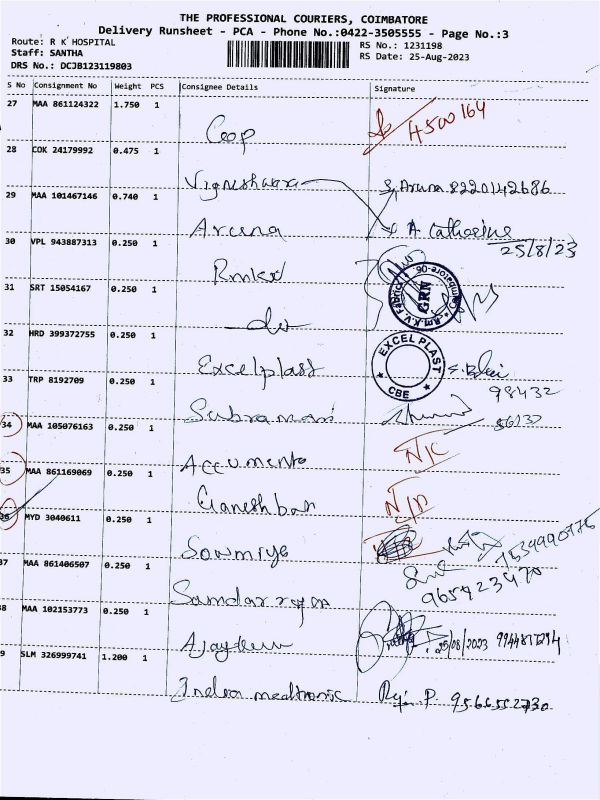 THE PROFESSIONAL COURIERS, COIMBATORE
Delivery Runsheet - PCA - Phone No.:0422-3505555 - Page No.:3
Route: R K HOSPITAL
Staff: SANTHA
DRS No.: DCJB123119803
RS No.: 1231198
RS Date: 25-Aug-2023
S No Consignment No Weight PCS Consignee Details Signature
27 MAA 861124322 1.750 1
Coop 4500164
28 COK 24179992 0.475 1
Vigneshwara Aruna 8220142686
29 MAA 101467146 0.740 1
Aruna A Catherine
25/8/23
30 VPL 943887313 0.250 1
Rmkv
31 SRT 15054167 0.250 1
do
GRN
32 HRD 399372755 0.250 1
Excelplast
EXCEL PLAST
CBE
98432
33 TRP 8192709 0.250 1
Subramani
34 MAA 105076163 0.250 1
Accumento N/C
35 MAA 861169069 0.250 1
Ganeshbab N/D
36 MYD 3040611 0.250 1
Sowmiya
37 MAA 861406507 0.250 1
Sundarrajan
38 MAA 102153773 0.250 1
25/08/2023
9 SLM 326999741 1.200 1
Indra medtronic P. 9566552730